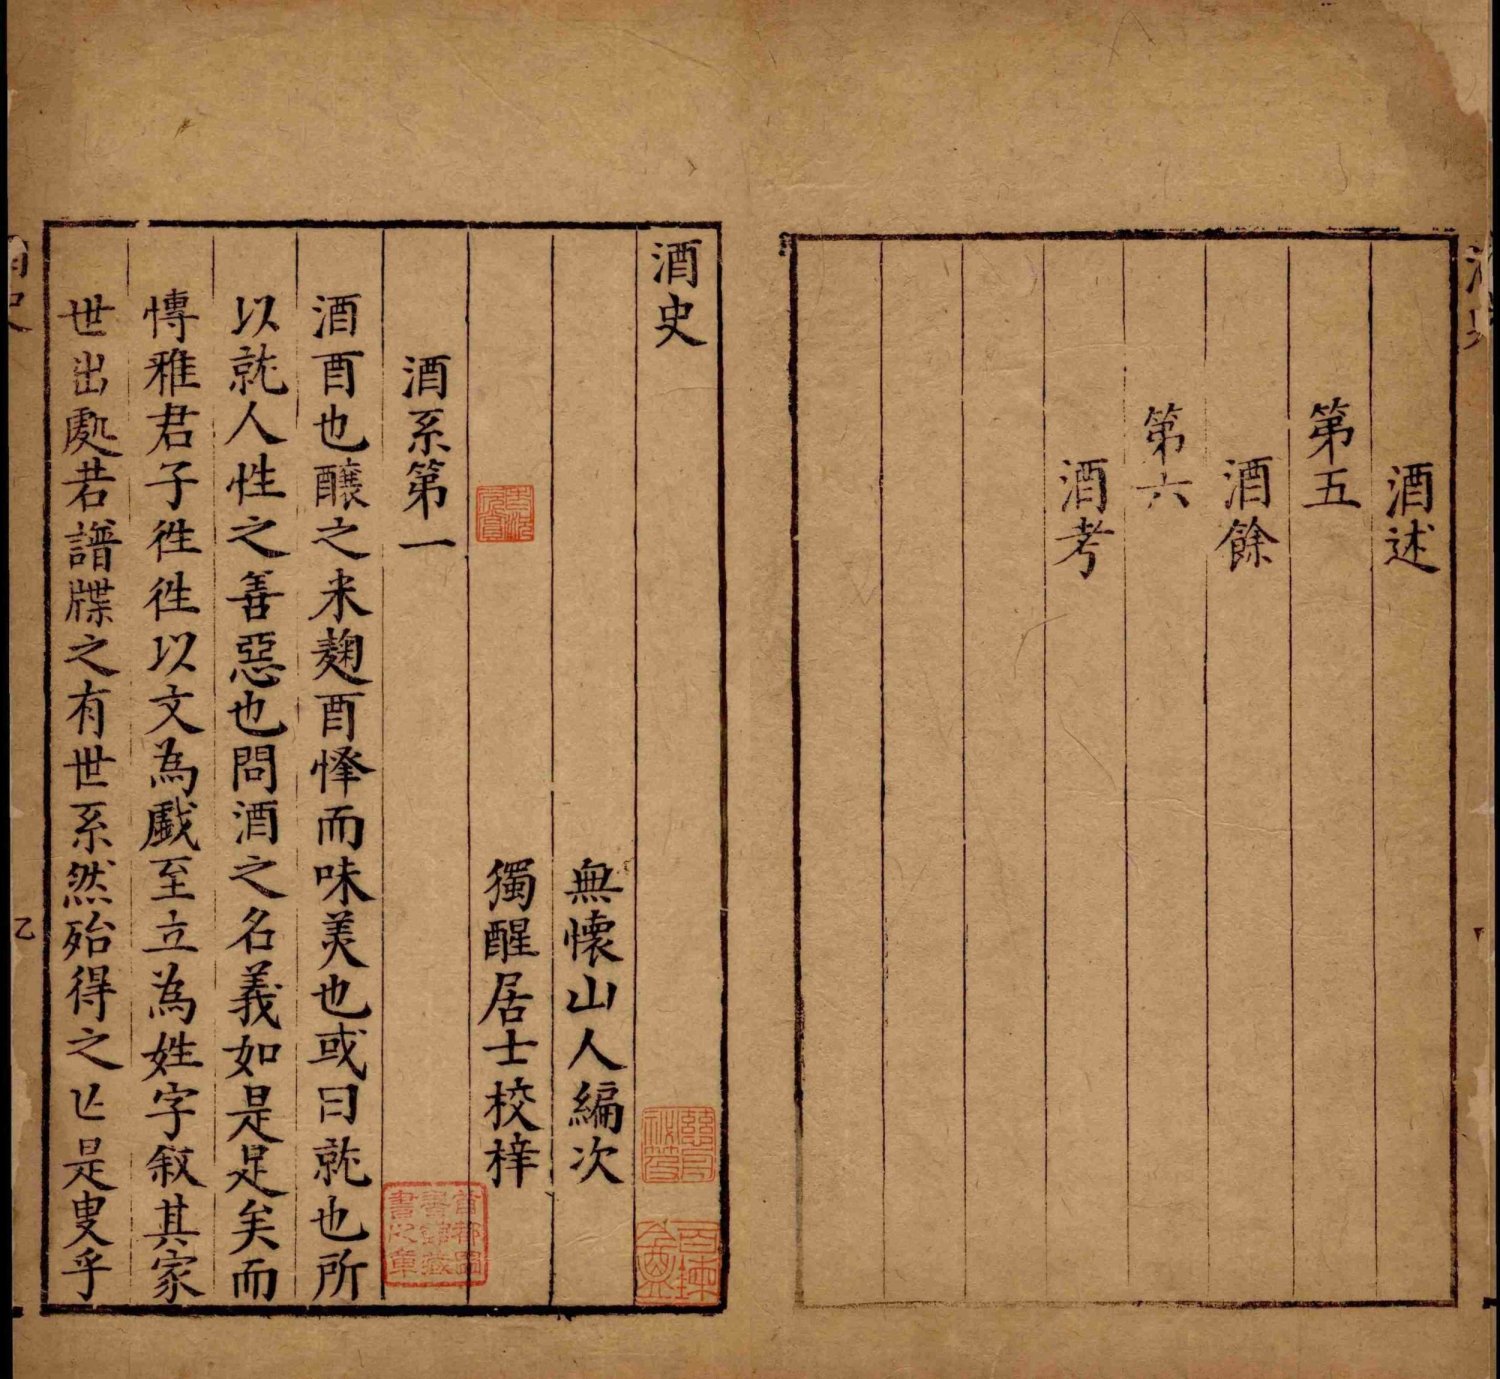 酒述
第五
酒餘
第六
酒考
酒史
無懷山人編次
獨醒居士校梓
酒系第一
酒酉也釀之米麹酉懌而味美也或曰就也所
以就人性之善惡也問酒之名義如是足矣而
博雅君子徃徃以文為戲至立為姓字叙其家
世出處若譜牒之有世系然殆得之亡是叟乎
首都圖
書館藏
書之章